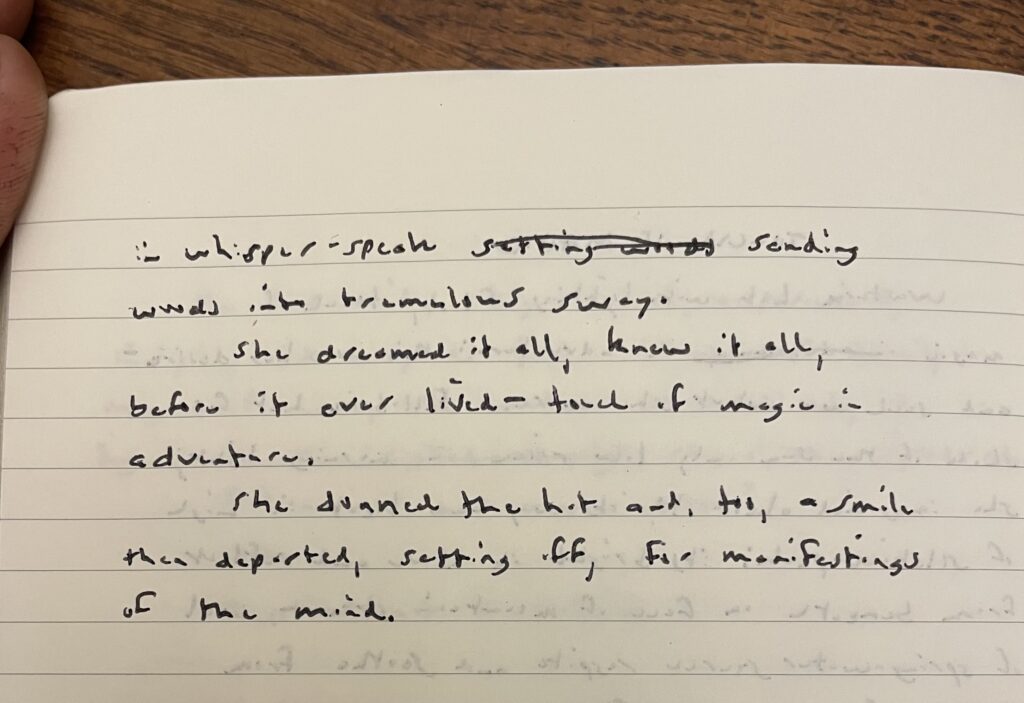 in whisper-speak setting words sending
words into tremulous sway.
She dreamed it all, knew it all,
before it ever lived- touch of magic in
adventure.
She donned the hat and, too, a smile
then departed, setting off, for manifestings
of the mind.